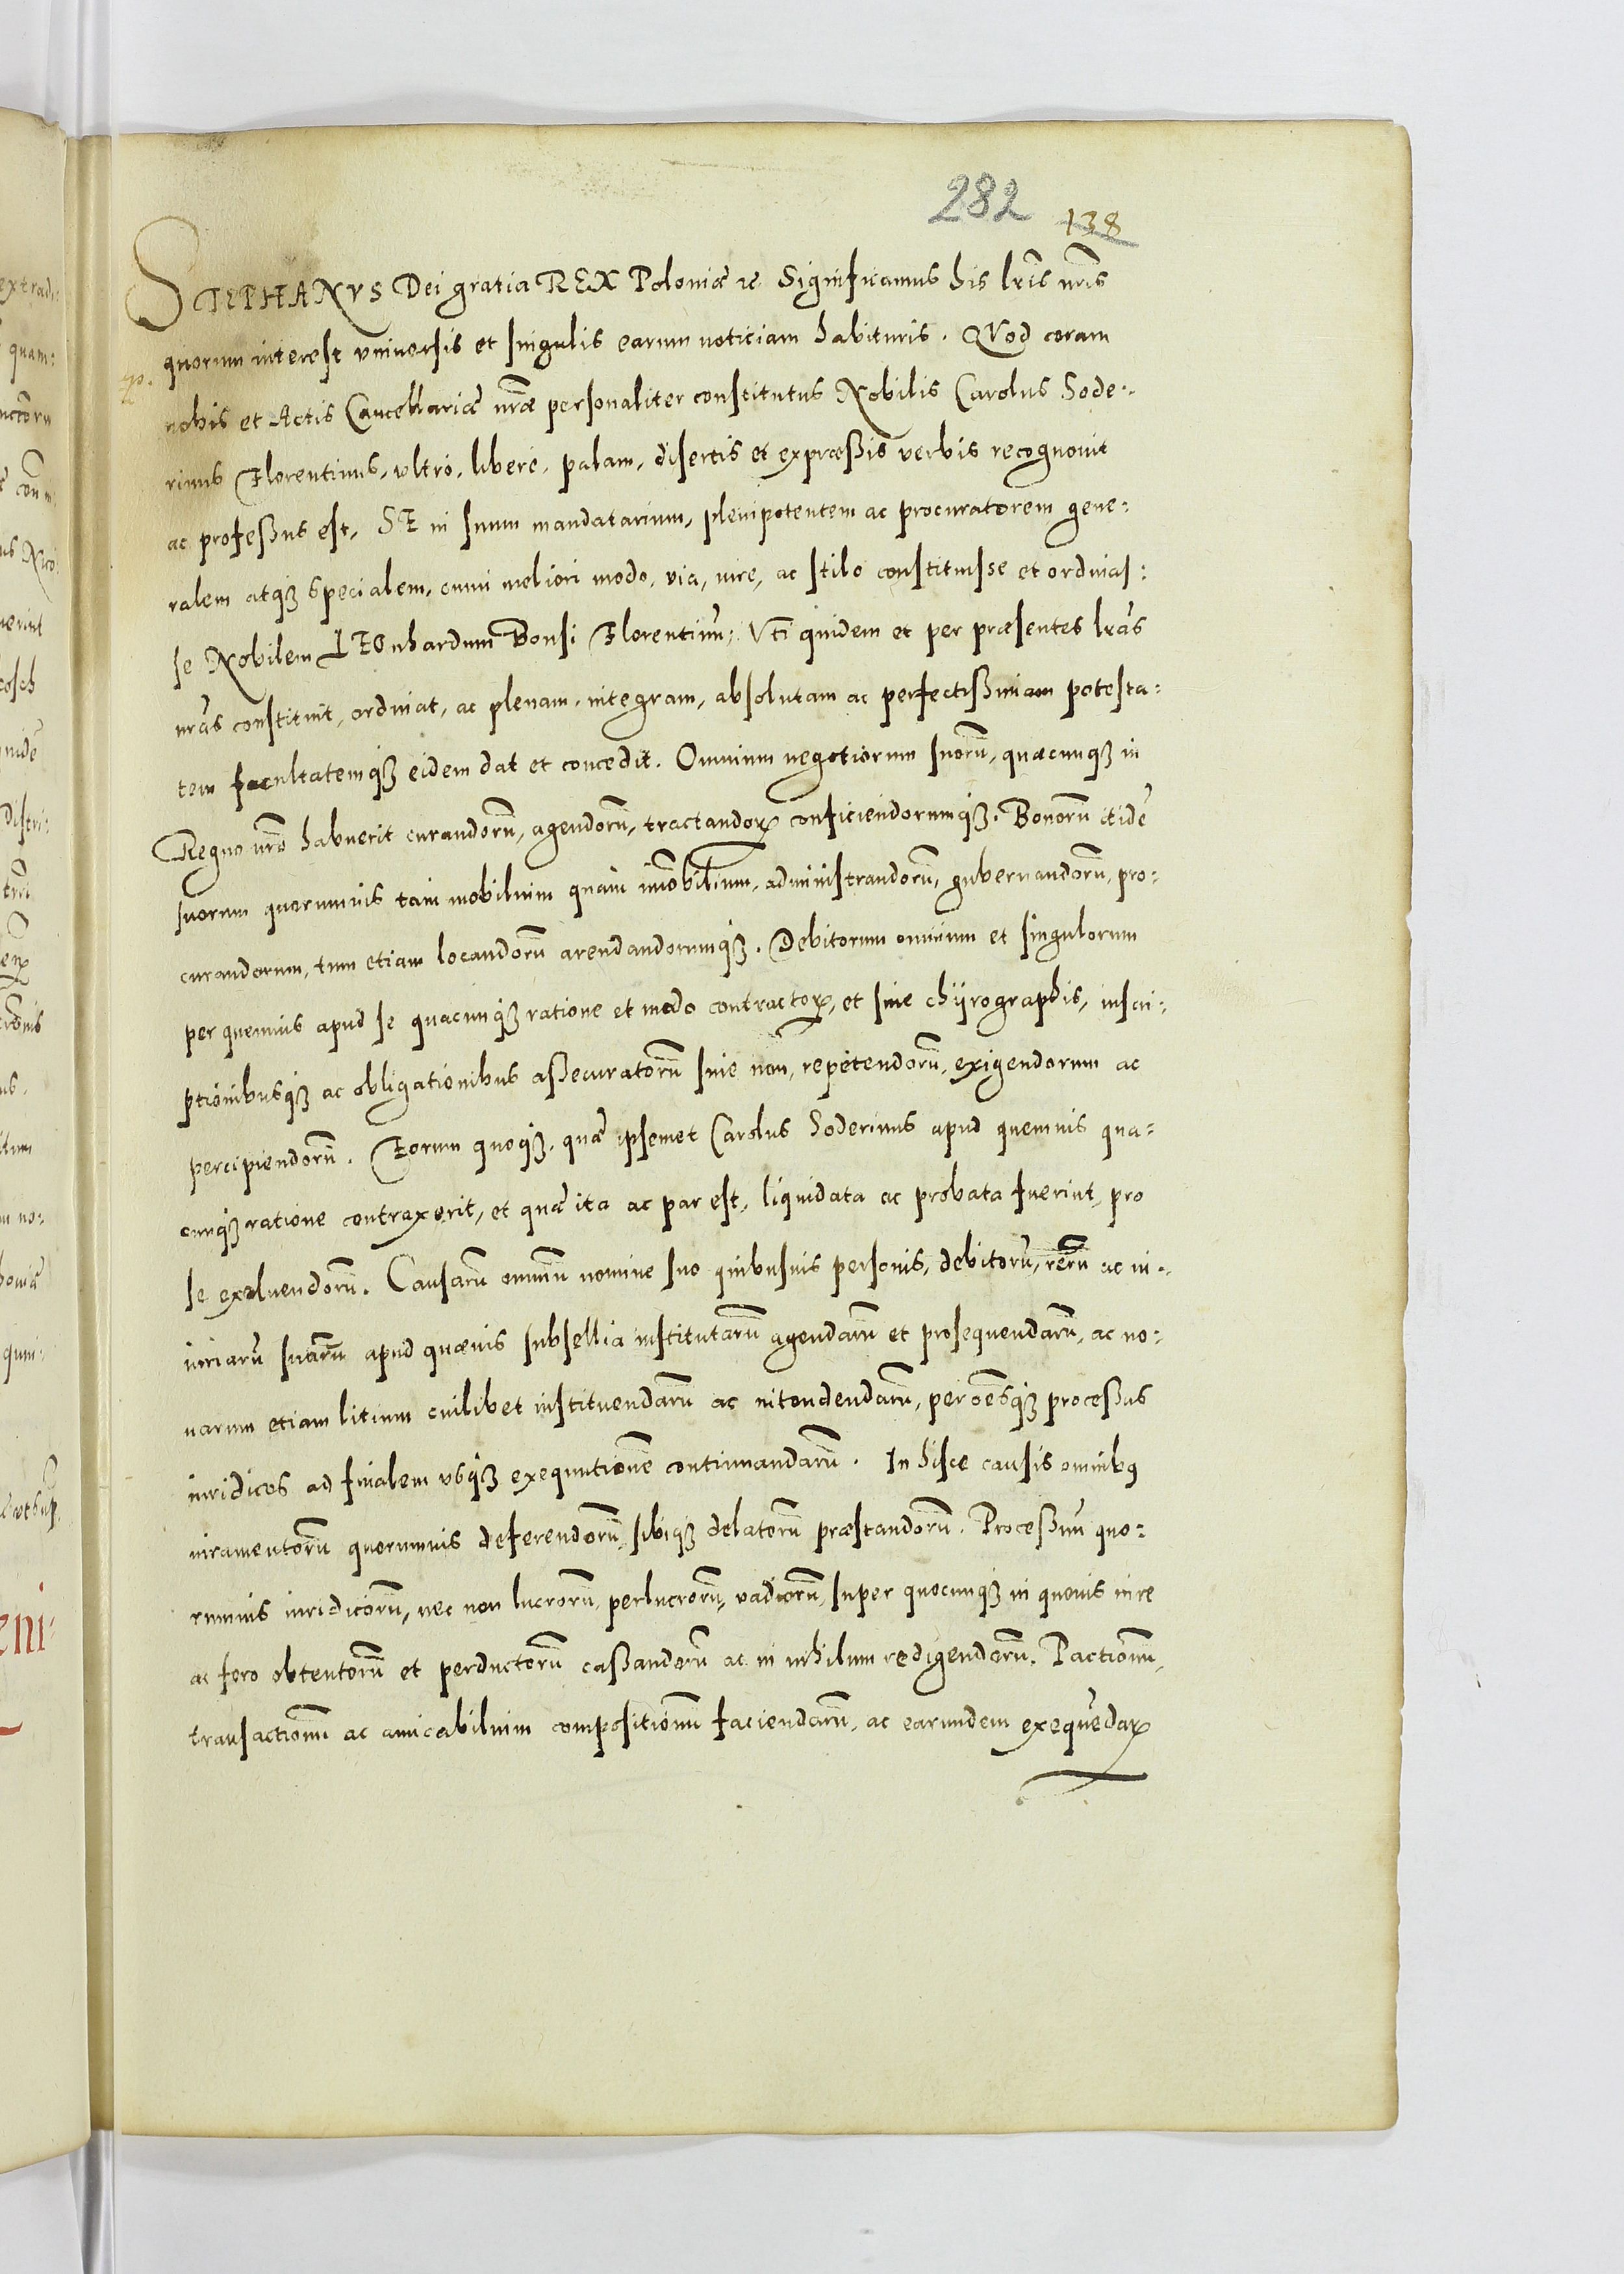 282 138
STEPHANVS Dei gratia REX Poloniæ rc Significamus his lr̃is nr̃is
quorum interest vniuersis et singulis earum noticiam habituris. QVod coram
nobis et Actis Cancellariæ nr̃æ personaliter constitutus Nobilis Carolus Sode:
rinus Florentinus, vltrò, liberè, palam, disertis et expræßis verbis recognouit
ac profeßus est, SE in suum mandatarium, plenipotentem ac procuratorem gene:
ralem atq₃ specialem, omni meliori modo, via, iure, ac stilo constituisse et ordinas:
se Nobilem LEOnhardum Bonsi Florentinũ; Vti quidem et per præsentes lr̃as
nr̃as constituit, ordinat, ac plenam, integram, absolutam ac perfectißimam potesta:
tem facultatemq₃ eidem dat et concedit. Omnium negotiorum suorũ, quæcunq₃ in
Regno nr̃o habuerit curandorũ, agendorũ, tractandoꝝ conficiendorumq₃. Bonorũ itidẽ
suorum quorumuis tam mobilium quàm im̃obilium, administrandorũ, gubernandorũ, pro:
curandorum, tum etiam locandorũ arendandorumq₃. Debitorum omnium et singulorum
per quemuis apud se quacunq₃ ratione et modo contractoꝝ, et siue chyrographis, inscri:
ptionibusq₃ ac obligationibus aßecuratorũ siue non, repetendorũ, exigendorum ac
percipiendorũ. Eorum quoq₃, quæ ipsemet Carolus Soderinus apud quemuis qua:
cunq₃ ratione contraxerit, et quæ ita ac par est, liquidata ac probata fuerint, pro
se exoluendorũ. Causarũ omniũ nomine suo quibusuis personis, debitorũ, rerũ ac in:
iuriarũ suarũ apud quæuis subsellia institutarũ agendarũ et prosequendarũ, ac no:
uarum etiam litium cuilibet instituendarũ ac intendendarũ, per oẽsq₃ proceßus
iuridicos ad finalem vsq₃ exequutionẽ continuandarũ. In hisce causis omnibꝰ
iuramentorũ quorumuis deferendorũ, sibiq₃ delatorũ præstandorũ. Proceßuũ quo:
rumuis iuridicorũ, nec non lucrorũ, perlucrorũ, vadiorũ, super quocunq₃ in quouis iure
ac foro obtentorũ et perductorũ caßandorũ ac in nihilum redigendorũ. Pactionũ,
transactionũ ac amicabilium compositionũ faciendarũ, ac earundem exequẽdaꝝ